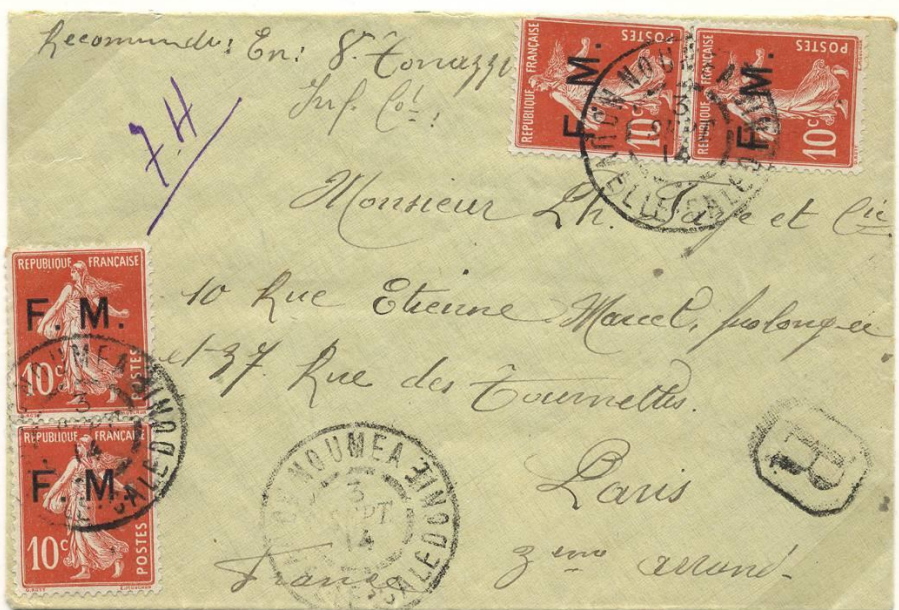 Recommandé: En: 8. Tonazzi
Inf. Col:
7H
REPUBLIQUE FRANÇAISE
F. M.
10c POSTES
REPUBLIQUE FRANÇAISE
F. M.
10c POSTES
NOUMEA
3
SEPT
14
Monsieur Ch. et Cie
10 Rue Etienne Marcel, prolongée
et 37 Rue des Tournelles.
Paris
3eme arrond-
France
REPUBLIQUE FRANÇAISE
F. M.
10c POSTES
REPUBLIQUE FRANÇAISE
F. M.
10c POSTES
NOUMEA
3
14
CALEDONIE
NOUMEA
3
SEPT
14
CALEDONIE
R